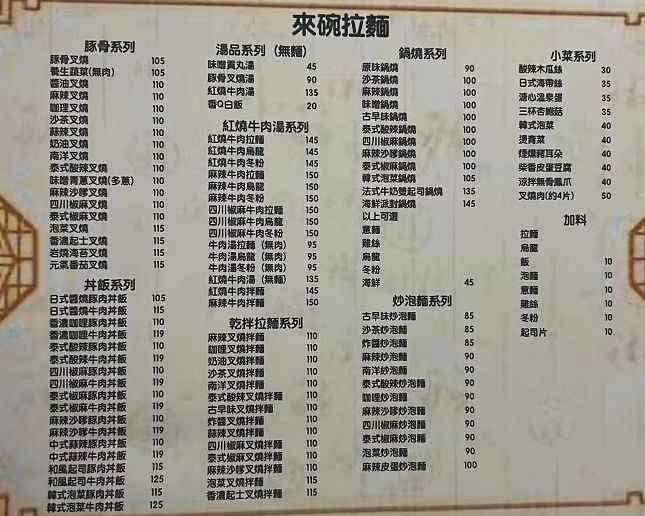 來碗拉麵
豚骨系列
豚骨叉燒 105
養生蔬菜(無肉) 105
醬油叉燒 110
麻辣叉燒 110
咖哩叉燒 110
沙茶叉燒 110
蒜辣叉燒 110
奶油叉燒 110
南洋叉燒 110
泰式酸辣叉燒 110
味噌青蔥叉燒(多蔥) 110
麻辣沙嗲叉燒 110
四川椒麻叉燒 110
泰式椒麻叉燒 110
泡菜叉燒 115
香濃起士叉燒 115
岩燒海苔叉燒 115
元氣番茄叉燒 115
丼飯系列
日式醬燒豚肉丼飯 105
日式醬燒牛肉丼飯 115
香濃咖哩豚肉丼飯 110
香濃咖哩牛肉丼飯 119
泰式酸辣豚肉丼飯 110
泰式酸辣牛肉丼飯 119
四川椒麻豚肉丼飯 110
四川椒麻牛肉丼飯 119
泰式椒麻豚肉丼飯 110
泰式椒麻牛肉丼飯 119
麻辣沙嗲豚肉丼飯 110
麻辣沙嗲牛肉丼飯 119
中式蒜辣豚肉丼飯 110
中式蒜辣牛肉丼飯 119
和風起司豚肉丼飯 115
和風起司牛肉丼飯 125
韓式泡菜豚肉丼飯 115
韓式泡菜牛肉丼飯 125
湯品系列（無麵）
味噌貢丸湯 45
豚骨叉燒湯 90
紅燒牛肉湯 135
香Q白飯 20
紅燒牛肉湯系列
紅燒牛肉拉麵 145
紅燒牛肉烏龍 145
紅燒牛肉冬粉 145
麻辣牛肉拉麵 150
麻辣牛肉烏龍 150
麻辣牛肉冬粉 150
四川椒麻牛肉拉麵 150
四川椒麻牛肉烏龍 150
四川椒麻牛肉冬粉 150
牛肉湯拉麵（無肉） 95
牛肉湯烏龍（無肉） 95
牛肉湯冬粉（無肉） 95
紅燒牛肉湯（無麵） 135
紅燒牛肉拌麵 145
麻辣牛肉拌麵 150
乾拌拉麵系列
麻辣叉燒拌麵 110
咖哩叉燒拌麵 110
奶油叉燒拌麵 110
沙茶叉燒拌麵 110
南洋叉燒拌麵 110
泰式酸辣叉燒拌麵 110
古早味叉燒拌麵 110
炸醬叉燒拌麵 110
蒜辣叉燒拌麵 110
四川椒麻叉燒拌麵 110
泰式椒麻叉燒拌麵 110
麻辣沙嗲叉燒拌麵 110
泡菜叉燒拌麵 115
香濃起士叉燒拌麵 115
鍋燒系列
原味鍋燒 90
沙茶鍋燒 100
麻辣鍋燒 100
味噌鍋燒 100
古早味鍋燒 100
泰式酸辣鍋燒 100
四川椒麻鍋燒 100
麻辣沙嗲鍋燒 100
泰式椒麻鍋燒 100
韓式泡菜鍋燒 105
法式牛奶雙起司鍋燒 135
海鮮派對鍋燒 145
以上可選
意麵
雞絲
烏龍
冬粉
海鮮 45
炒泡麵系列
古早味炒泡麵 85
沙茶炒泡麵 85
炸醬炒泡麵 85
麻辣炒泡麵 90
南洋炒泡麵 90
泰式酸辣炒泡麵 90
咖哩炒泡麵 90
麻辣沙嗲炒泡麵 90
四川椒麻炒泡麵 90
泰式椒麻炒泡麵 90
泡菜炒泡麵 90
麻辣皮蛋炒泡麵 100
小菜系列
酸辣木瓜絲 30
日式海帶絲 35
溏心溫泉蛋 35
三杯杏鮑菇 35
韓式泡菜 40
燙青菜 40
煙燻豬耳朵 40
柴香皮蛋豆腐 40
涼拌無骨鳳爪 40
叉燒肉(約4片) 50
加料
拉麵
烏龍
飯 10
泡麵 10
意麵 10
雞絲 10
冬粉 10
起司片 10